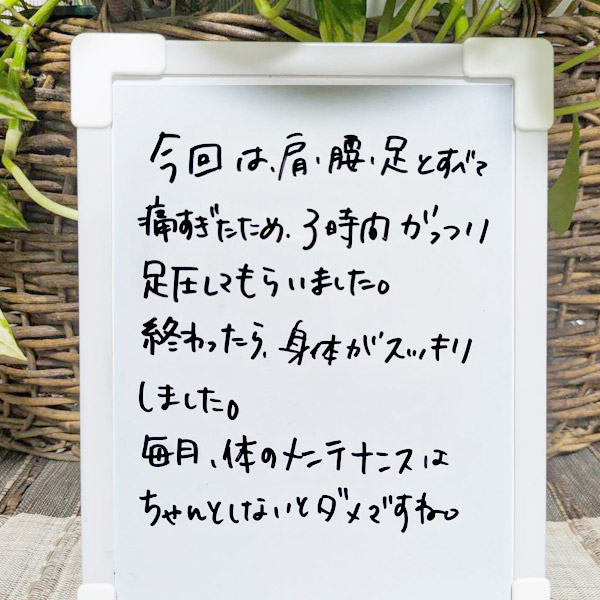 今回は、肩、腰、足とすべて
痛すぎたため、3時間がっつり
足圧してもらいました。
終わったら、身体がスッキリ
しました。
毎月、体のメンテナンスは
ちゃんとしないとダメですね。